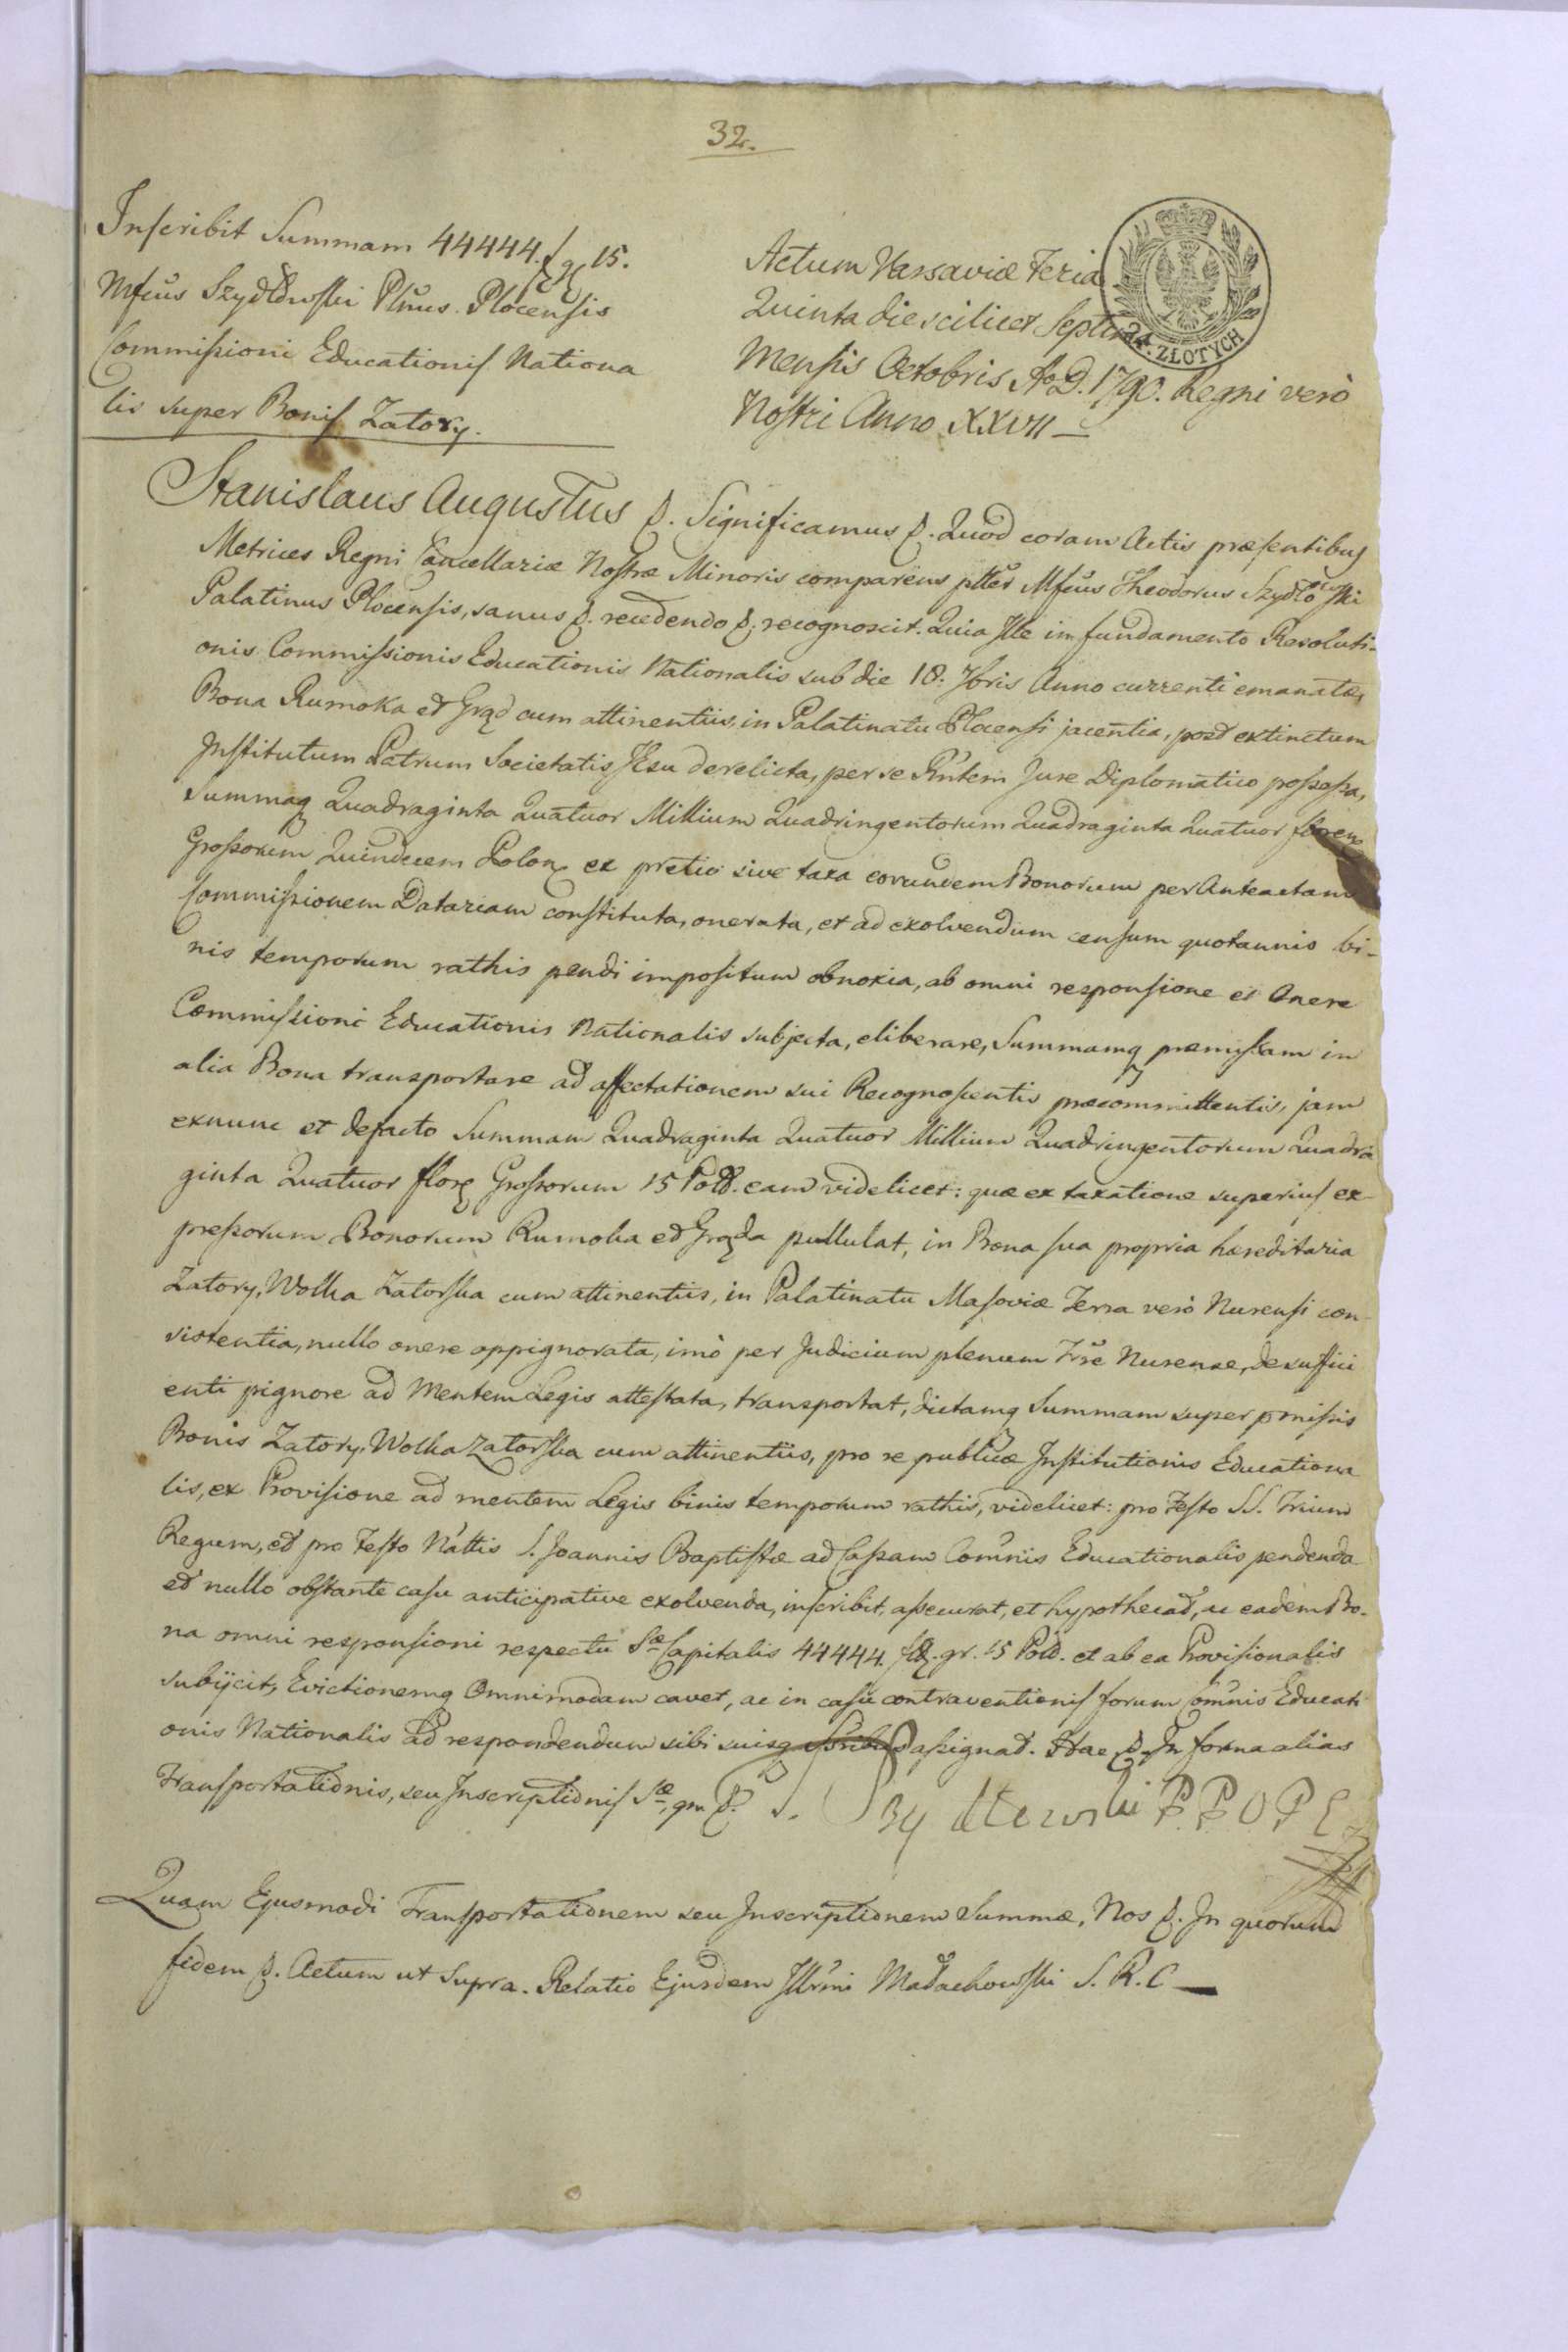 32.
Inscribit Summam 44444. f g 15.
Mfcus Szydłowski Pltnus Plocensis
Commissioni Educationis Nationa
lis super Bonis Zatory.
Actum Varsaviæ Feria
Quinta die scilicet Septima
Mensis Octobris Ao D. 1790. Regni verò
Nostri Anno XXVII
24. ZŁOTYCH
Stanislaus Augustus &. Significamus &. Quod coram Actis præsentibus
Metrices Regni Cancellariæ Nostræ Minoris comparens pltter Mfcus Theodorus Szydłowski
Palatinus Plocensis, sanus &. recedendo &. recognoscit. Quia Ille in fundamento Resoluti-
onis Commissionis Educationis Nationalis sub die 18. 7bris Anno currenti emanatæ,
Bona Rumoka et Grąd cum attinentiis, in Palatinatu Plocensi jacentia, post extinctum
Institutum Patrum Societatis Jesu derelicta, per se Rntem Jure Diplomatico possessa,
Summaq Quadraginta Quatuor Millium Quadringentorum Quadraginta Quatuor floren
Grossorum Quindecem Polon ex pretio sive taxa eorundem Bonorum per Anteactam
Commissionem Datariam constituta, onerata, et ad exolvendum censum quotannis bi-
nis temporum rathis pendi impositum obnoxia, ab omni responsione et Onere
Commissioni Educationis Nationalis subjecta, eliberare, Summamq præmissam in
alia Bona transportare ad affectationem sui Recognoscentis præcommittentis, jam
exnunc et defacto Summam Quadraginta Quatuor Millium Quadringentorum Quadra
ginta Quatuor flor Grossorum 15 Poll. eam videlicet: quæ ex taxatione superius ex-
pressorum Bonorum Rumoka et Grąda pullulat, in Bona sua propria hæreditaria
Zatory, Wolka Zatorska cum attinentiis, in Palatinatu Masoviæ Terra verò Nurensi con-
sistentia, nullo onere oppignorata, imò per Judicium plenum Trre Nurense, de suffici
enti pignore ad Mentem Legis attestata, transportat, dictamq Summam super pmissis
Bonis Zatory, Wolka Zatorska cum attinentiis, pro re publicæ Institutionis Educationa
lis, ex Provisione ad mentem Legis binis temporum rathis, videlicet: pro Festo SS. Trium
Regum, et pro Festo Nattis S. Joannis Baptistæ ad Cassam Comnis Educationalis pendenda
et nullo obstante casu anticipative exolvenda, inscribit, assecurat, et hypothecat, ac eadem Bo-
na omni responsioni respectu Sæ Capitalis 44444. fl. gr. 15 Poll. et ab ea Provisionalis
subijcit, Evictionemq Omnimodam cavet, ac in casu contraventionis forum Comnis Educati
onis Nationalis ad respondendum sibi suisq assignat. Hac &. In forma alias
Transportationis, seu Inscriptionis Sæ, qm &.
Quam Ejusmodi Transportationem seu Inscriptionem Summæ, Nos &. In quorum
fidem &. Actum ut Supra. Relatio Ejusdem Illrmi Małachowski S. R. C